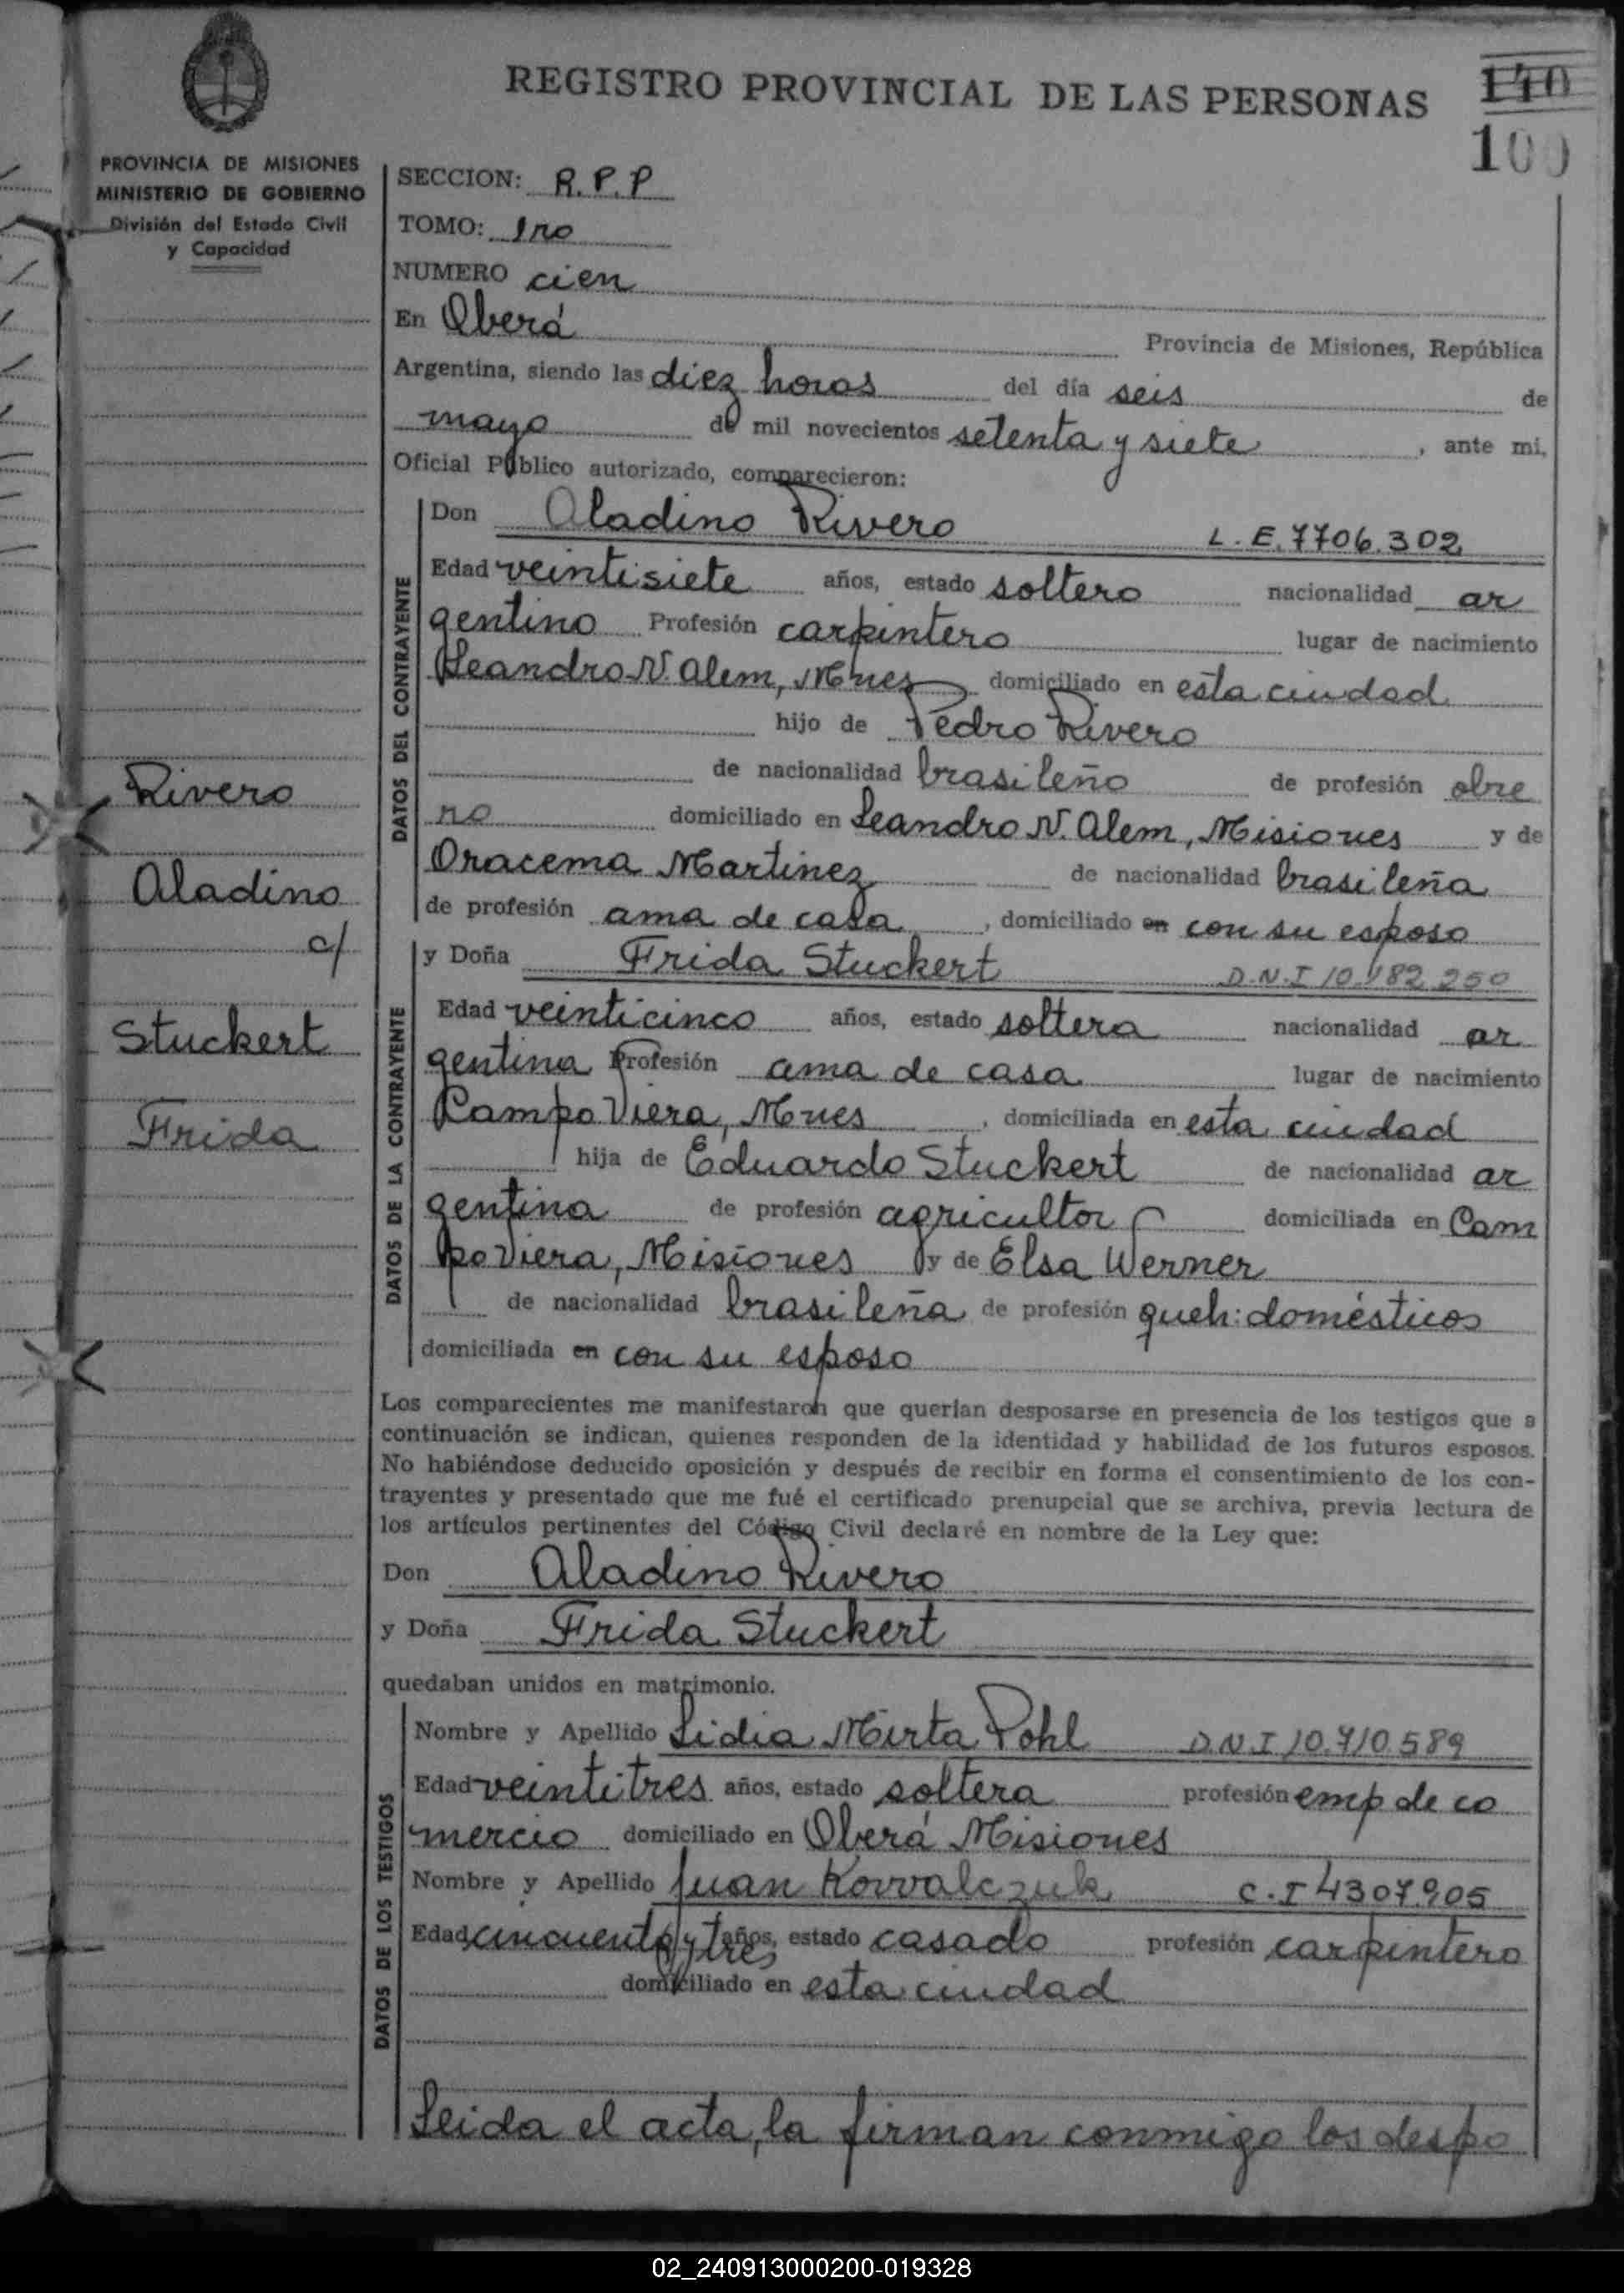 REGISTRO PROVINCIAL DE LAS PERSONAS
140
100
PROVINCIA DE MISIONES
MINISTERIO DE GOBIERNO
División del Estado Civil
y Capacidad
SECCION: R.P.P
TOMO: 1ro
NUMERO cien
En Oberá Provincia de Misiones, República
Argentina, siendo las diez horas del día seis de
mayo de mil novecientos setenta y siete, ante mi,
Oficial Público autorizado, comparecieron:
DATOS DEL CONTRAYENTE
Don Aladino Rivero L.E. 7706.302
Edad veintisiete años, estado soltero nacionalidad ar
gentino Profesión carpintero lugar de nacimiento
Leandro N. Alem, Mnes domiciliado en esta ciudad
hijo de Pedro Rivero
de nacionalidad brasileño de profesión obre
ro domiciliado en Leandro N. Alem, Misiones y de
Oracema Martinez de nacionalidad brasileña
de profesión ama de casa, domiciliado en con su esposo
Rivero
Aladino
c/
Stuckert
Frida
DATOS DE LA CONTRAYENTE
y Doña Frida Stuckert D.N.I 10.182.250
Edad veinticinco años, estado soltera nacionalidad ar
gentina Profesión ama de casa lugar de nacimiento
Campo Viera, Mnes, domiciliada en esta ciudad
hija de Eduardo Stuckert de nacionalidad ar
gentina de profesión agricultor domiciliada en Cam
po Viera, Misiones y de Elsa Werner
de nacionalidad brasileña de profesión queh: domésticos
domiciliada en con su esposo
Los comparecientes me manifestaron que querían desposarse en presencia de los testigos que a
continuación se indican, quienes responden de la identidad y habilidad de los futuros esposos.
No habiéndose deducido oposición y después de recibir en forma el consentimiento de los con-
trayentes y presentado que me fué el certificado prenupcial que se archiva, previa lectura de
los artículos pertinentes del Código Civil declaré en nombre de la Ley que:
Don Aladino Rivero
y Doña Frida Stuckert
quedaban unidos en matrimonio.
DATOS DE LOS TESTIGOS
Nombre y Apellido Lidia Mirta Pohl D.N.I 10.710.589
Edad veintitres años, estado soltera profesión emp de co
mercio domiciliado en Oberá Misiones
Nombre y Apellido Juan Kowalczuk C.I 4307.905
Edad cincuenta y tres años, estado casado profesión carpintero
domiciliado en esta ciudad
Leida el acta, la firman conmigo los despo
02_240913000200-019328